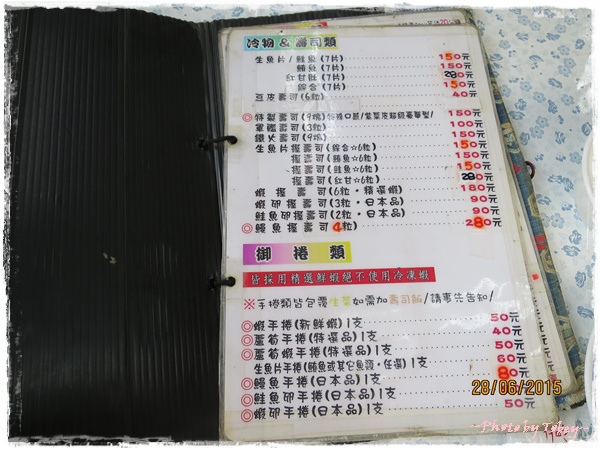 冷物&壽司類
生魚片/鮭魚(7片) 150元
鮪魚(7片) 150元
紅甘魽(7片) 280元
綜合(7片) 150元
豆皮壽司(6粒) 40元
◎特選壽司(9塊) 150元
軍艦壽司(3粒) 100元
鐵火壽司(9塊) 150元
生魚片握壽司(綜合☆6粒) 150元
握壽司(鮪魚☆6粒) 150元
握壽司(鮭魚☆6粒) 150元
握壽司(紅甘☆6粒) 280元
蝦握壽司(6粒・精選蝦) 180元
蝦卵握壽司(3粒・日本品) 90元
鮭魚卵握壽司(2粒・日本品) 90元
◎鰻魚握壽司(4粒) 280元
御捲類
皆採用精選鮮蝦絕不使用冷凍蝦
※手捲類皆包覆生菜如需加壽司飯/請事先告知/
◎蝦手捲(新鮮蝦)1支 50元
◎蘆筍手捲(特選品)1支 40元
◎蘆筍蝦手捲(特選品)1支 50元
生魚片手捲(鮪魚或其它魚類・任選)1支 60元
◎鰻魚手捲(日本品)1支 80元
◎鮭魚卵手捲(日本品)1支
◎蝦卵手捲(日本品)1支 50元
28/06/2015
~Photo by Tokey~